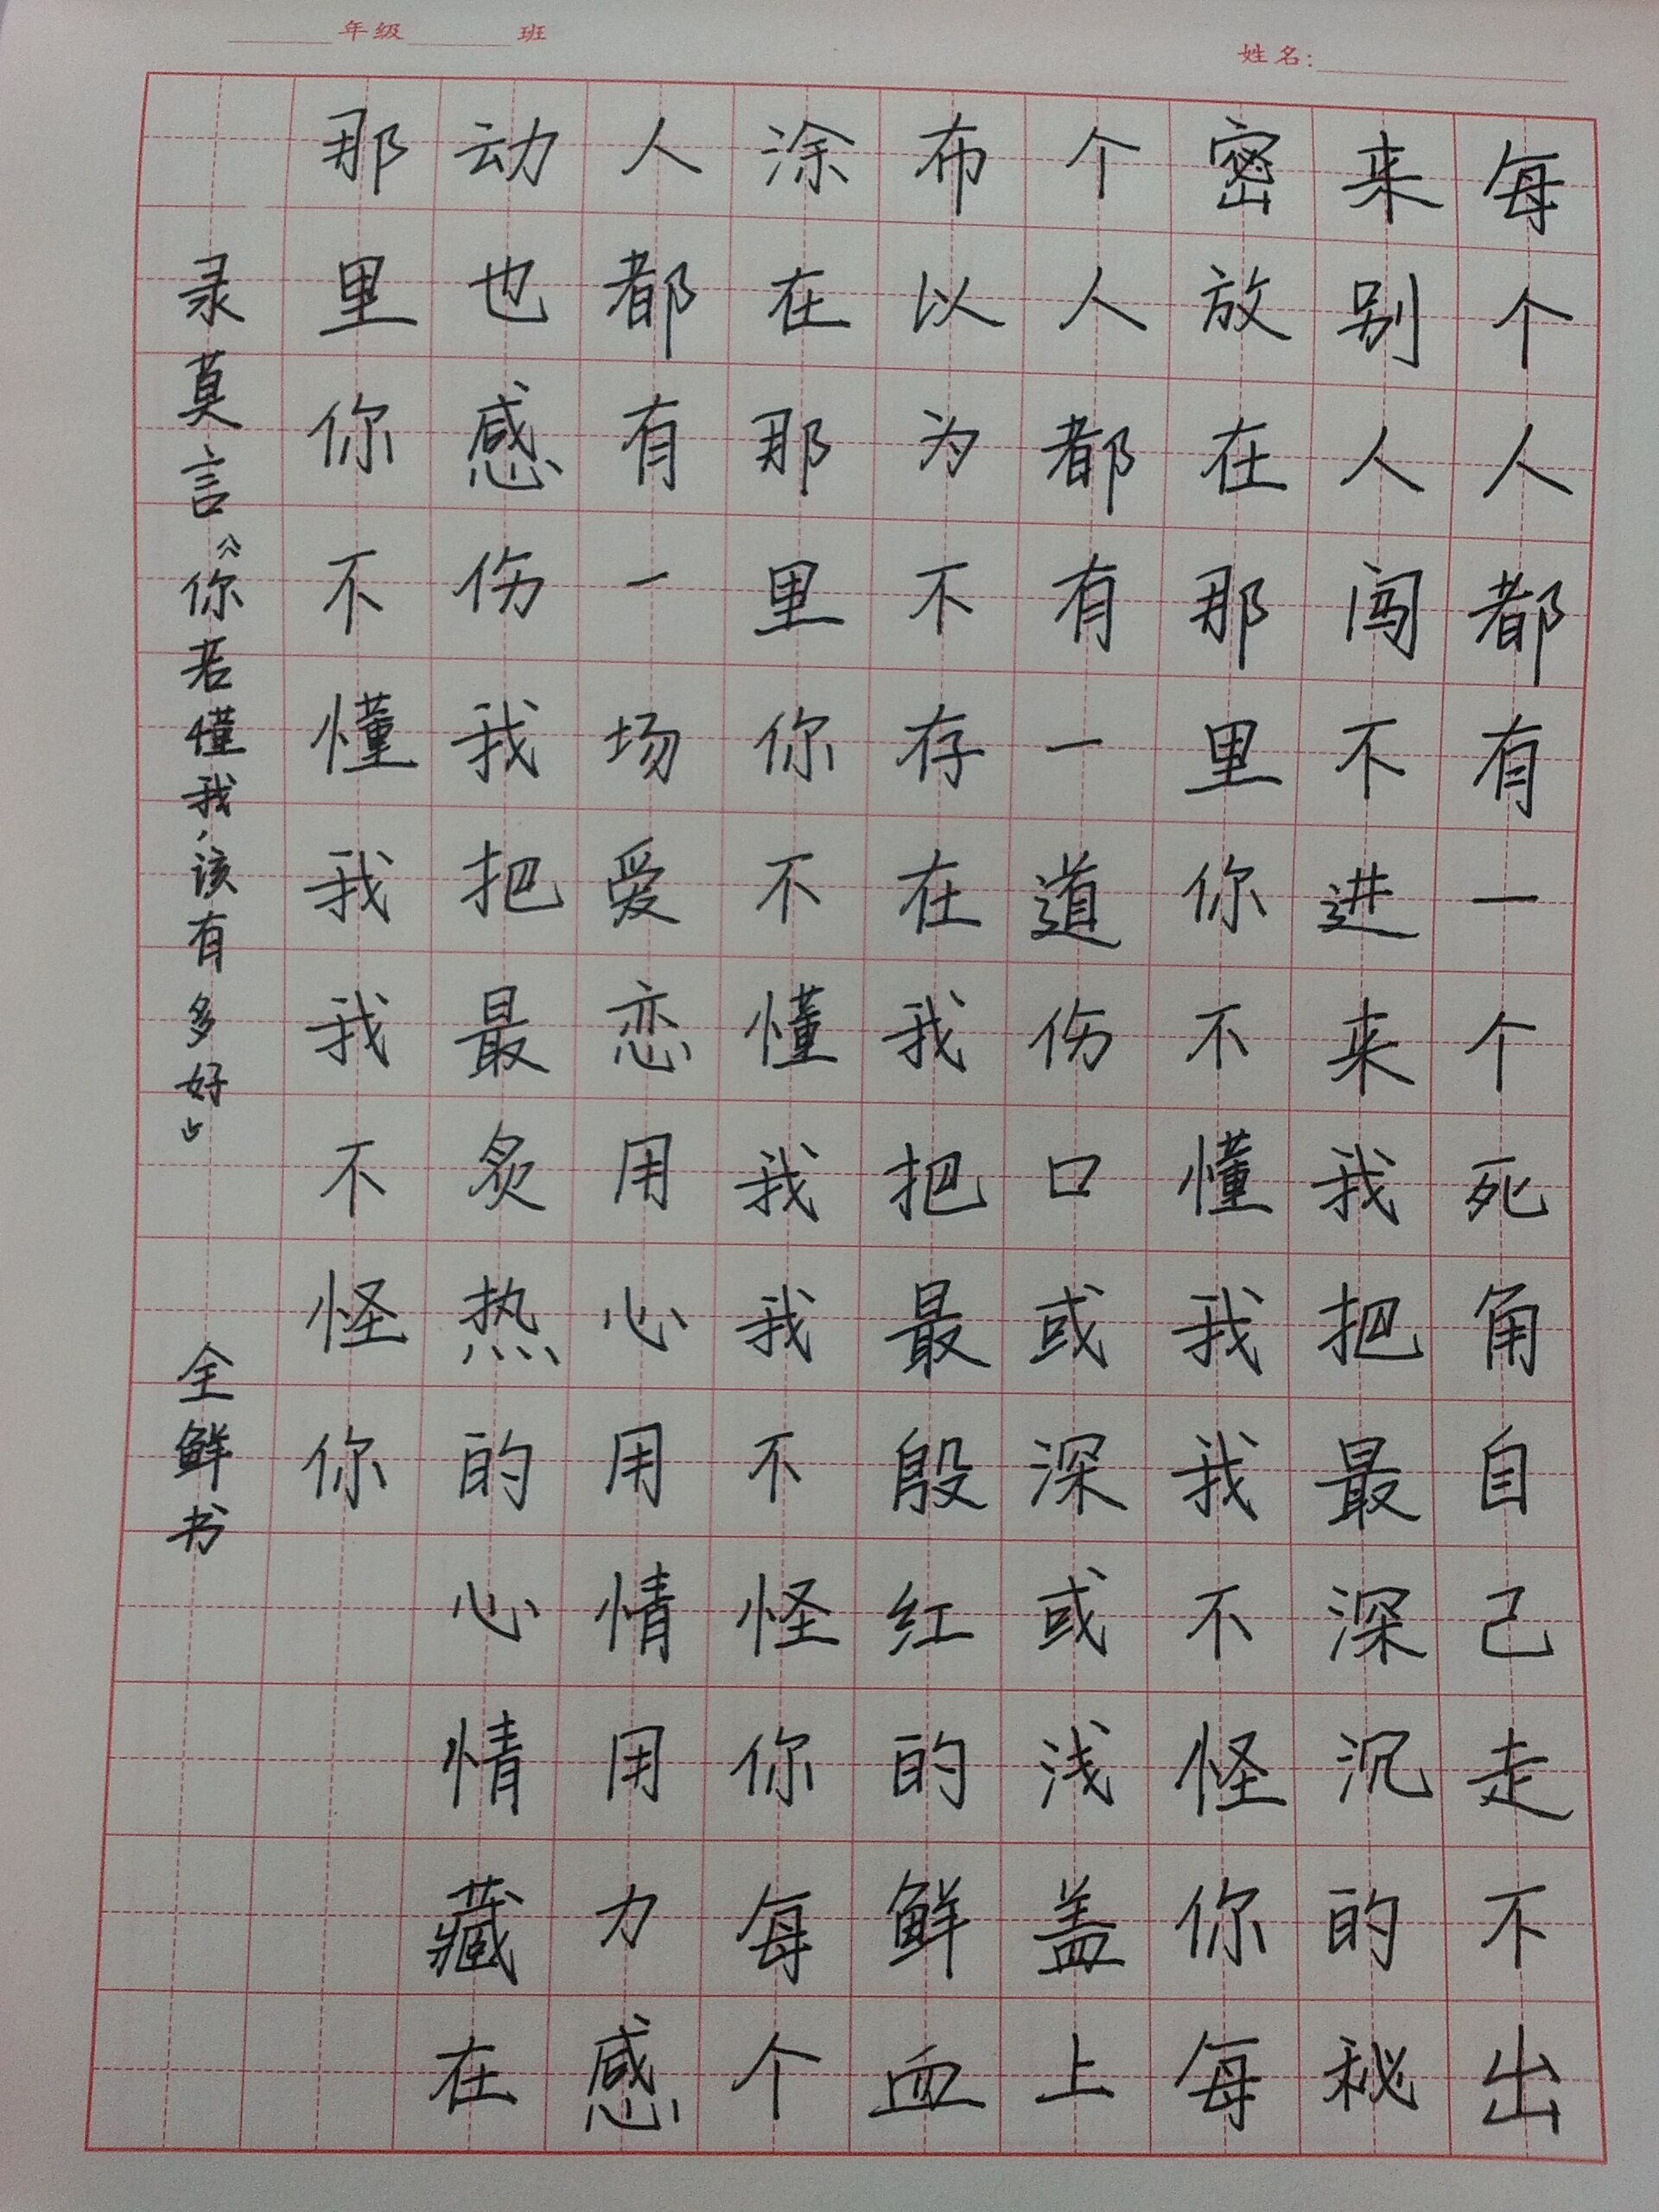 年级 班
姓名:
每个人都有一个死角自己走不出
来别人闯不进来我把最深沉的秘
密放在那里你不懂我我不怪你每
个人都有一道伤口或深或浅盖上
布以为不存在我把最殷红的鲜血
涂在那里你不懂我我不怪你每个
人都有一场爱恋用心用情用力感
动也感伤我把最炙热的心情藏在
那里你不懂我我不怪你
录莫言《你若懂我,该有多好》 全鲜书